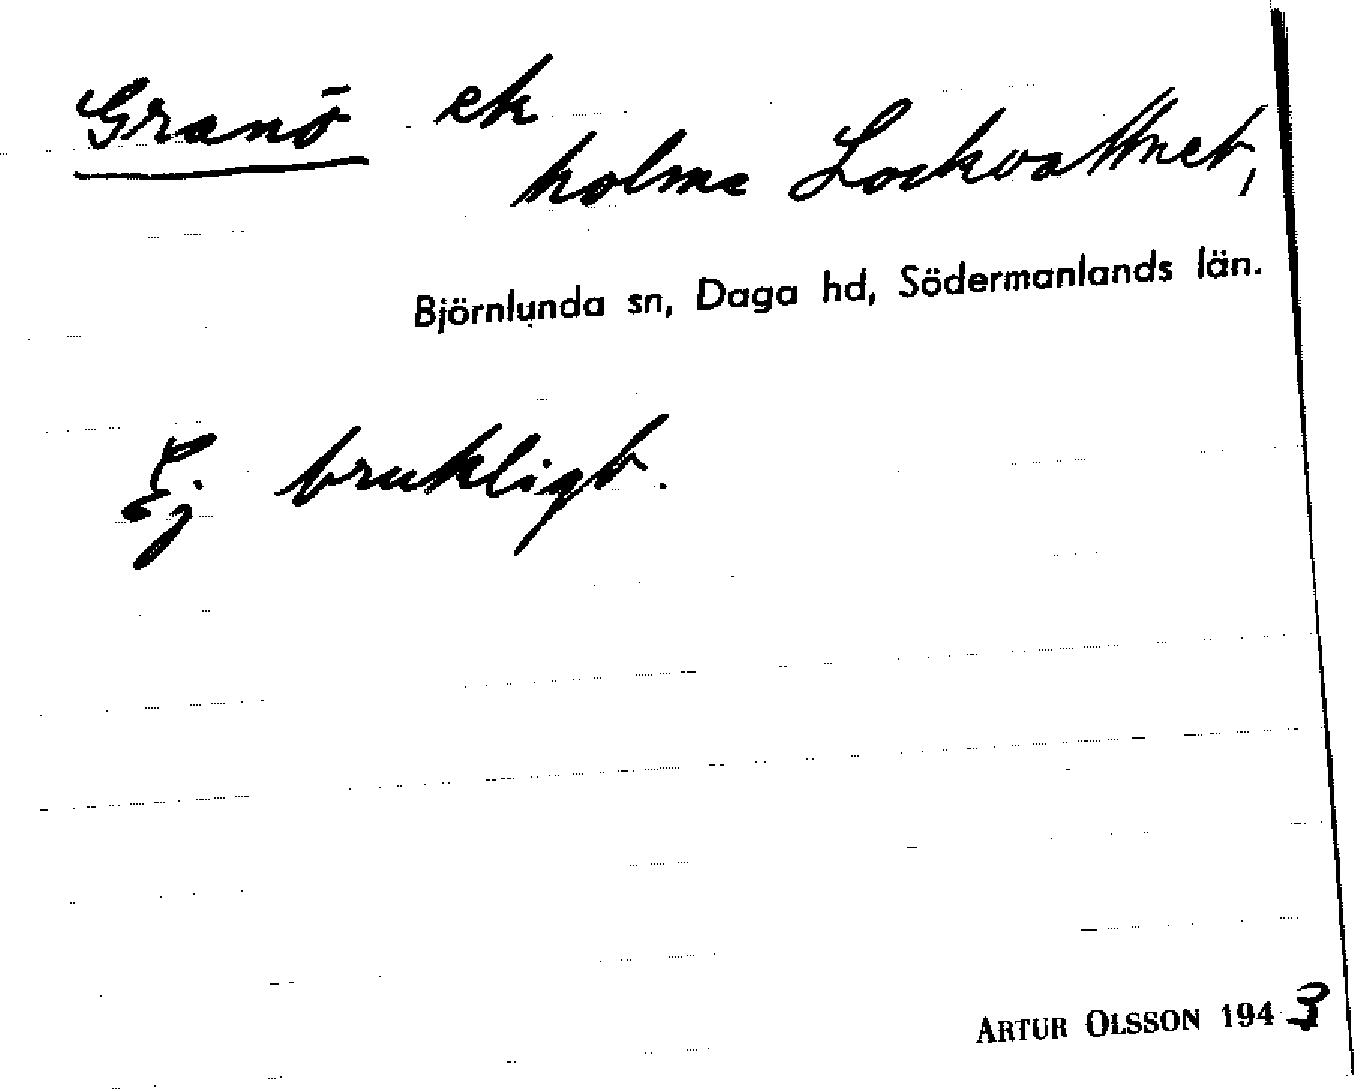 Granö ek
holme Lockvattnet,
Björnlunda sn, Daga hd, Södermanlands län.
Ej brukligt.
ARTUR OLSSON 1943